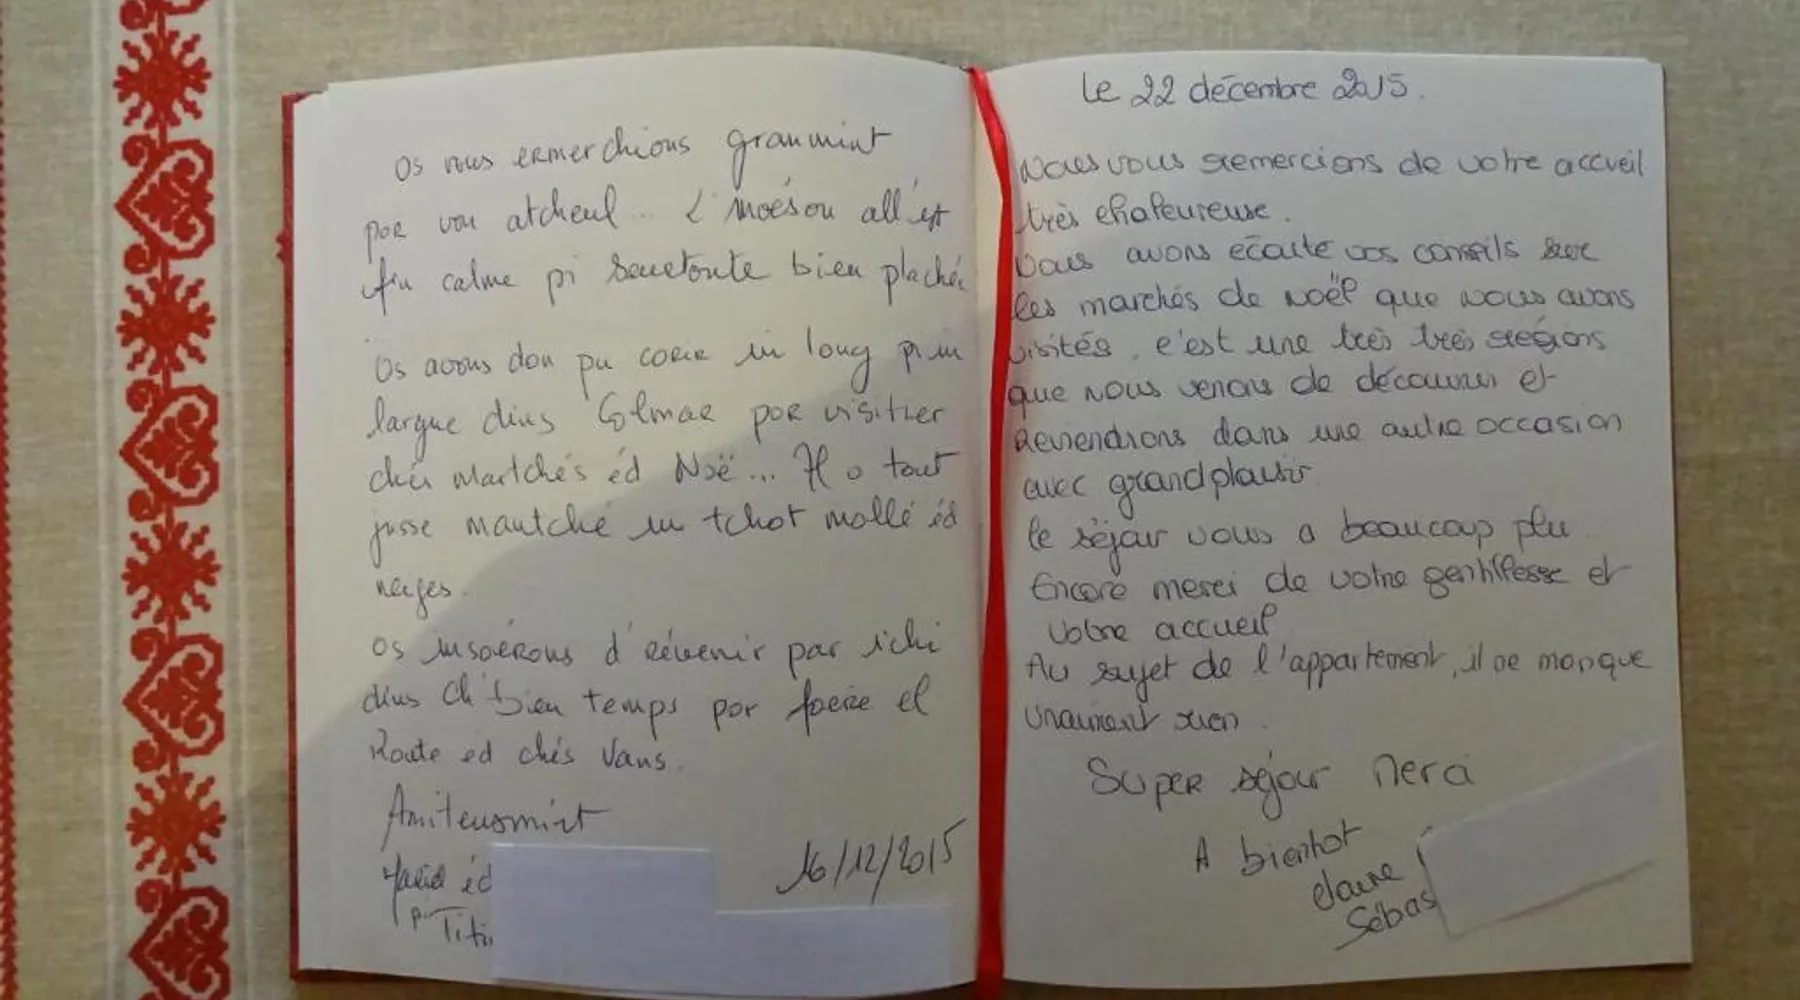 Os vous ermerchions granmint
por vou atcheul... L'moéson all'est
fin calme pi surtoute bien plachée
Os avons don pu corir in long pi in
largue dins Colmar por visitier
chés Martchés éd Noë... Il o tout
jusse mantché un tchot mollé éd
neiges.
Os inspérons d'révenir par ichi
dins Ch'bien temps por foére el
Route ed chés Vans.
Amiteusmint
éd
pi Titi
16/12/2015
Le 22 décembre 2015.
Nous vous remercions de votre accueil
très chaleureuse.
Nous avons écouté vos conseils sur
les marchés de Noël que nous avons
visités, c'est une très très régions
que nous venons de découvrir et
Reviendrons dans une autre occasion
avec grand plaisir
le séjour nous a beaucoup plu.
Encore merci de votre gentillesse et
votre accueil
Au sujet de l'appartement, il ne manque
vraiment rien.
Super séjour Merci
A bientot
Sébas